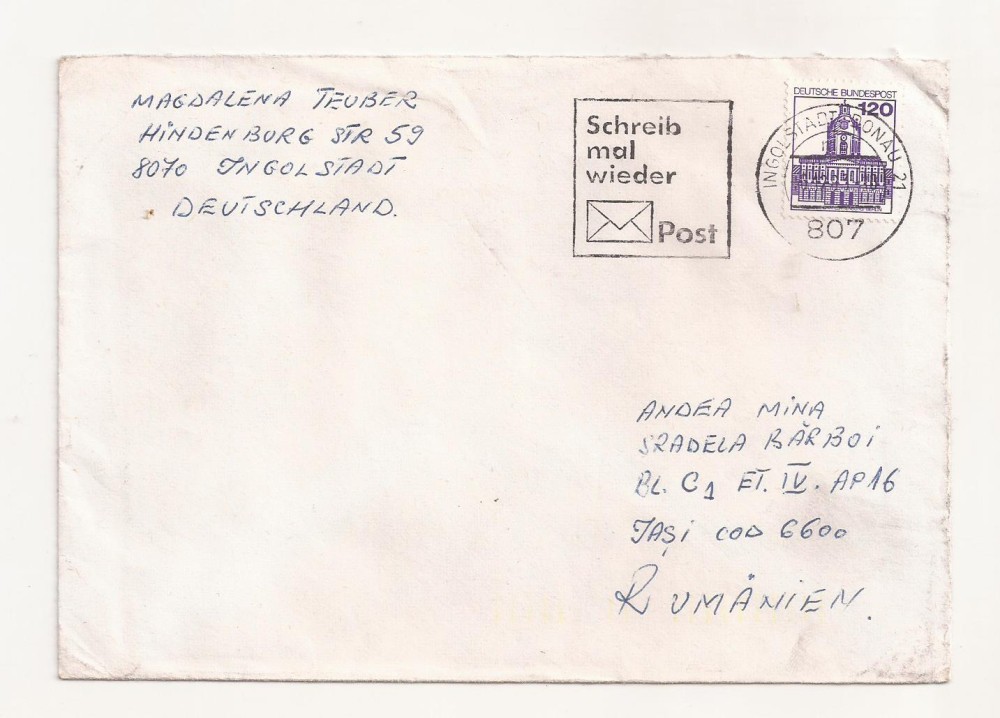 MAGDALENA TEUBER
HINDENBURG STR 59
8070 INGOLSTADT
DEUTSCHLAND.
Schreib
mal
wieder
Post
DEUTSCHE BUNDESPOST
120
INGOLSTADT, DONAU 21
807
ANDEA MINA
SRADELA BĂRBOI
BL. C1 ET. IV. AP16
IAŞI COD 6600
RUMÄNIEN.